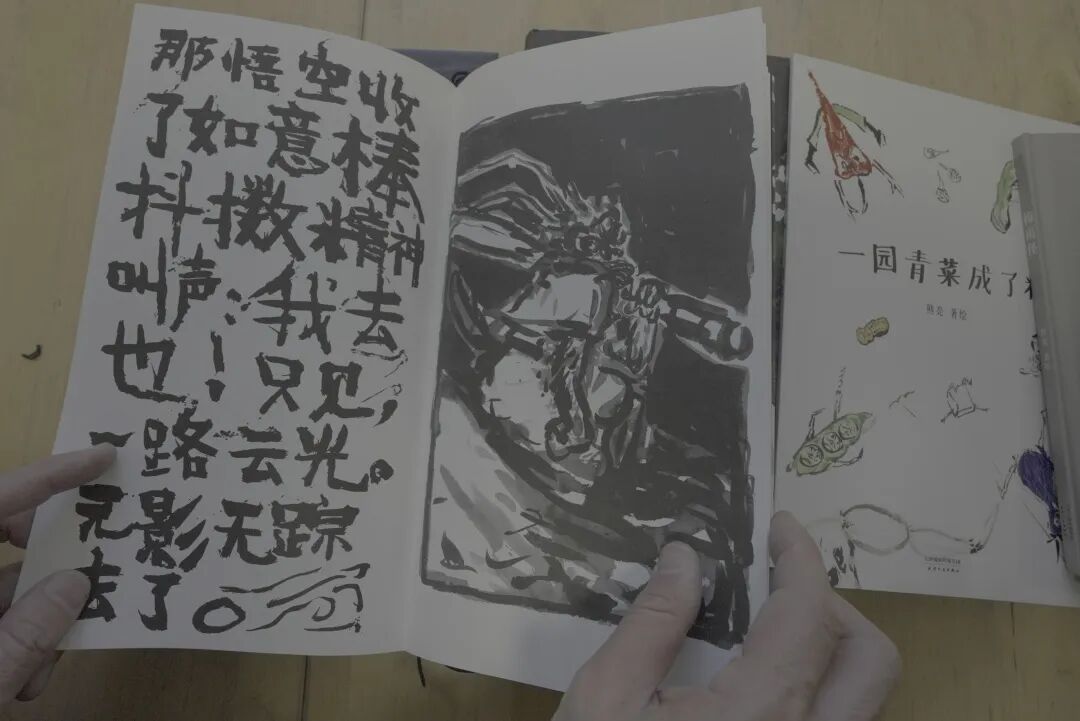 那悟空收
了如意棒
抖擞精神
叫声：我去
也！只见，
一路云光。
无影无踪
去了。
一园青菜成了
熊亮 著绘